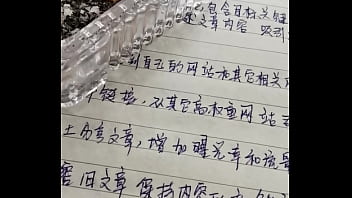 包含目标关键
文章内容 吸引
到自己的网站和其它相关
链接，从其它高权重网站
上分享文章，增加曝光率和流量
旧文章 保持内容